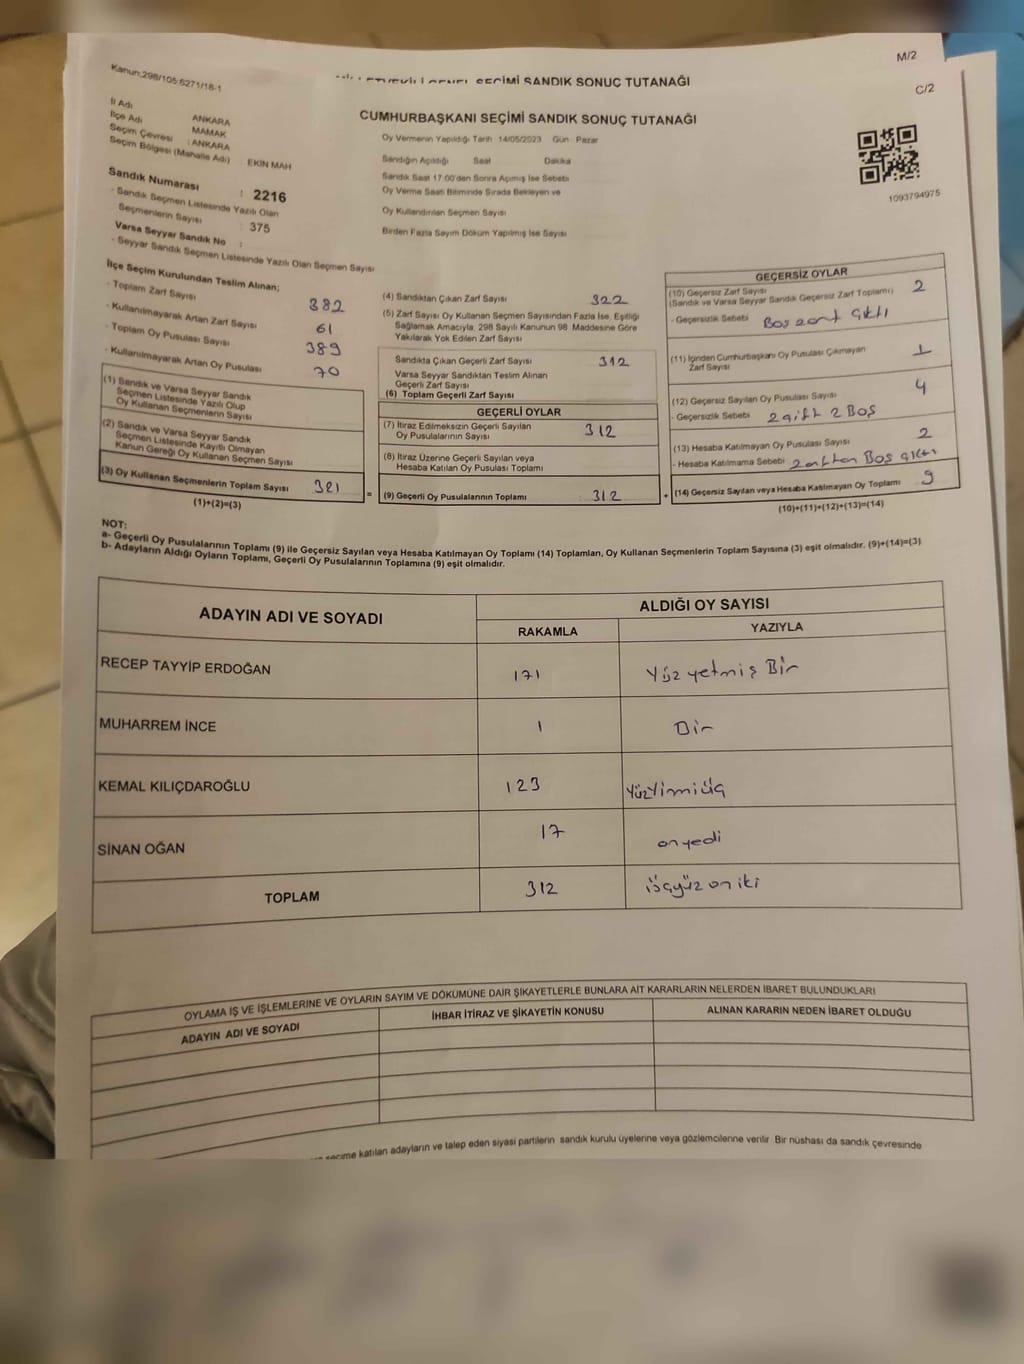 M/2
SEÇİMİ SANDIK SONUÇ TUTANAĞI
C/2
Kanun:298/105:6271/18-1
CUMHURBAŞKANI SEÇİMİ SANDIK SONUÇ TUTANAĞI
İl Adı ANKARA
İlçe Adı MAMAK
Seçim Çevresi : ANKARA
Seçim Bölgesi (Mahalle Adı) : EKİN MAH
Sandık Numarası : 2216
- Sandık Seçmen Listesinde Yazılı Olan
Seçmenlerin Sayısı : 375
Varsa Seyyar Sandık No :
- Seyyar Sandık Seçmen Listesinde Yazılı Olan Seçmen Sayısı
Oy Vermenin Yapıldığı Tarih 14/05/2023 Gün Pazar
Sandığın Açıldığı Saat Dakika
Sandık Saat 17:00'den Sonra Açımış İse Sebebi
Oy Verme Saati Bitiminde Sırada Bekleyen ve
Oy Kullandırılan Seçmen Sayısı
Birden Fazla Sayım Döküm Yapılmış İse Sayısı
1093794975
İlçe Seçim Kurulundan Teslim Alınan;
- Toplam Zarf Sayısı 382
- Kullanılmayarak Artan Zarf Sayısı 61
- Toplam Oy Pusulası Sayısı 389
- Kullanılmayarak Artan Oy Pusulası 70
(1) Sandık ve Varsa Seyyar Sandık
Seçmen Listesinde Yazılı Olup
Oy Kullanan Seçmenlerin Sayısı
(2) Sandık ve Varsa Seyyar Sandık
Seçmen Listesinde Kayıtlı Olmayan
Kanun Gereği Oy Kullanan Seçmen Sayısı
(3) Oy Kullanan Seçmenlerin Toplam Sayısı 321 =
(1)+(2)=(3)
(4) Sandıktan Çıkan Zarf Sayısı 322
(5) Zarf Sayısı Oy Kullanan Seçmen Sayısından Fazla İse, Eşitliği
Sağlamak Amacıyla, 298 Sayılı Kanunun 98. Maddesine Göre
Yakılarak Yok Edilen Zarf Sayısı
Sandıkta Çıkan Geçerli Zarf Sayısı 312
Varsa Seyyar Sandıktan Teslim Alınan
Geçerli Zarf Sayısı
(6) Toplam Geçerli Zarf Sayısı
GEÇERLİ OYLAR
(7) İtiraz Edilmeksizin Geçerli Sayılan
Oy Pusulalarının Sayısı 312
(8) İtiraz Üzerine Geçerli Sayılan veya
Hesaba Katılan Oy Pusulası Toplamı
(9) Geçerli Oy Pusulalarının Toplamı : 312 +
GEÇERSİZ OYLAR
(10) Geçersiz Zarf Sayısı 2
(Sandık ve Varsa Seyyar Sandık Geçersiz Zarf Toplamı)
- Geçersizlik Sebebi Boş zarf çıktı
(11) İçinden Cumhurbaşkanı Oy Pusulası Çıkmayan 1
Zarf Sayısı
(12) Geçersiz Sayılan Oy Pusulası Sayısı 4
- Geçersizlik Sebebi 2 çift 2 Boş
(13) Hesaba Katılmayan Oy Pusulası Sayısı 2
- Hesaba Katılmama Sebebi 2 zarftan Boş çıktı
(14) Geçersiz Sayılan veya Hesaba Katılmayan Oy Toplamı 9
(10)+(11)+(12)+(13)=(14)
NOT:
a- Geçerli Oy Pusulalarının Toplamı (9) ile Geçersiz Sayılan veya Hesaba Katılmayan Oy Toplamı (14) Toplamları, Oy Kullanan Seçmenlerin Toplam Sayısına (3) eşit olmalıdır. (9)+(14)=(3)
b- Adayların Aldığı Oyların Toplamı, Geçerli Oy Pusulalarının Toplamına (9) eşit olmalıdır.
ADAYIN ADI VE SOYADI
ALDIĞI OY SAYISI
RAKAMLA YAZIYLA
RECEP TAYYİP ERDOĞAN 171 Yüz yetmiş Bir
MUHARREM İNCE 1 Bir
KEMAL KILIÇDAROĞLU 123 Yüzyimiüç
SİNAN OĞAN 17 onyedi
TOPLAM 312 üçyüz on iki
OYLAMA İŞ VE İŞLEMLERİNE VE OYLARIN SAYIM VE DÖKÜMÜNE DAİR ŞİKAYETLERLE BUNLARA AİT KARARLARIN NELERDEN İBARET BULUNDUKLARI
ADAYIN ADI VE SOYADI İHBAR İTİRAZ VE ŞİKAYETİN KONUSU ALINAN KARARIN NEDEN İBARET OLDUĞU
seçime katılan adayların ve talep eden siyasi partilerin sandık kurulu üyelerine veya gözlemcilerine verilir. Bir nüshası da sandık çevresinde